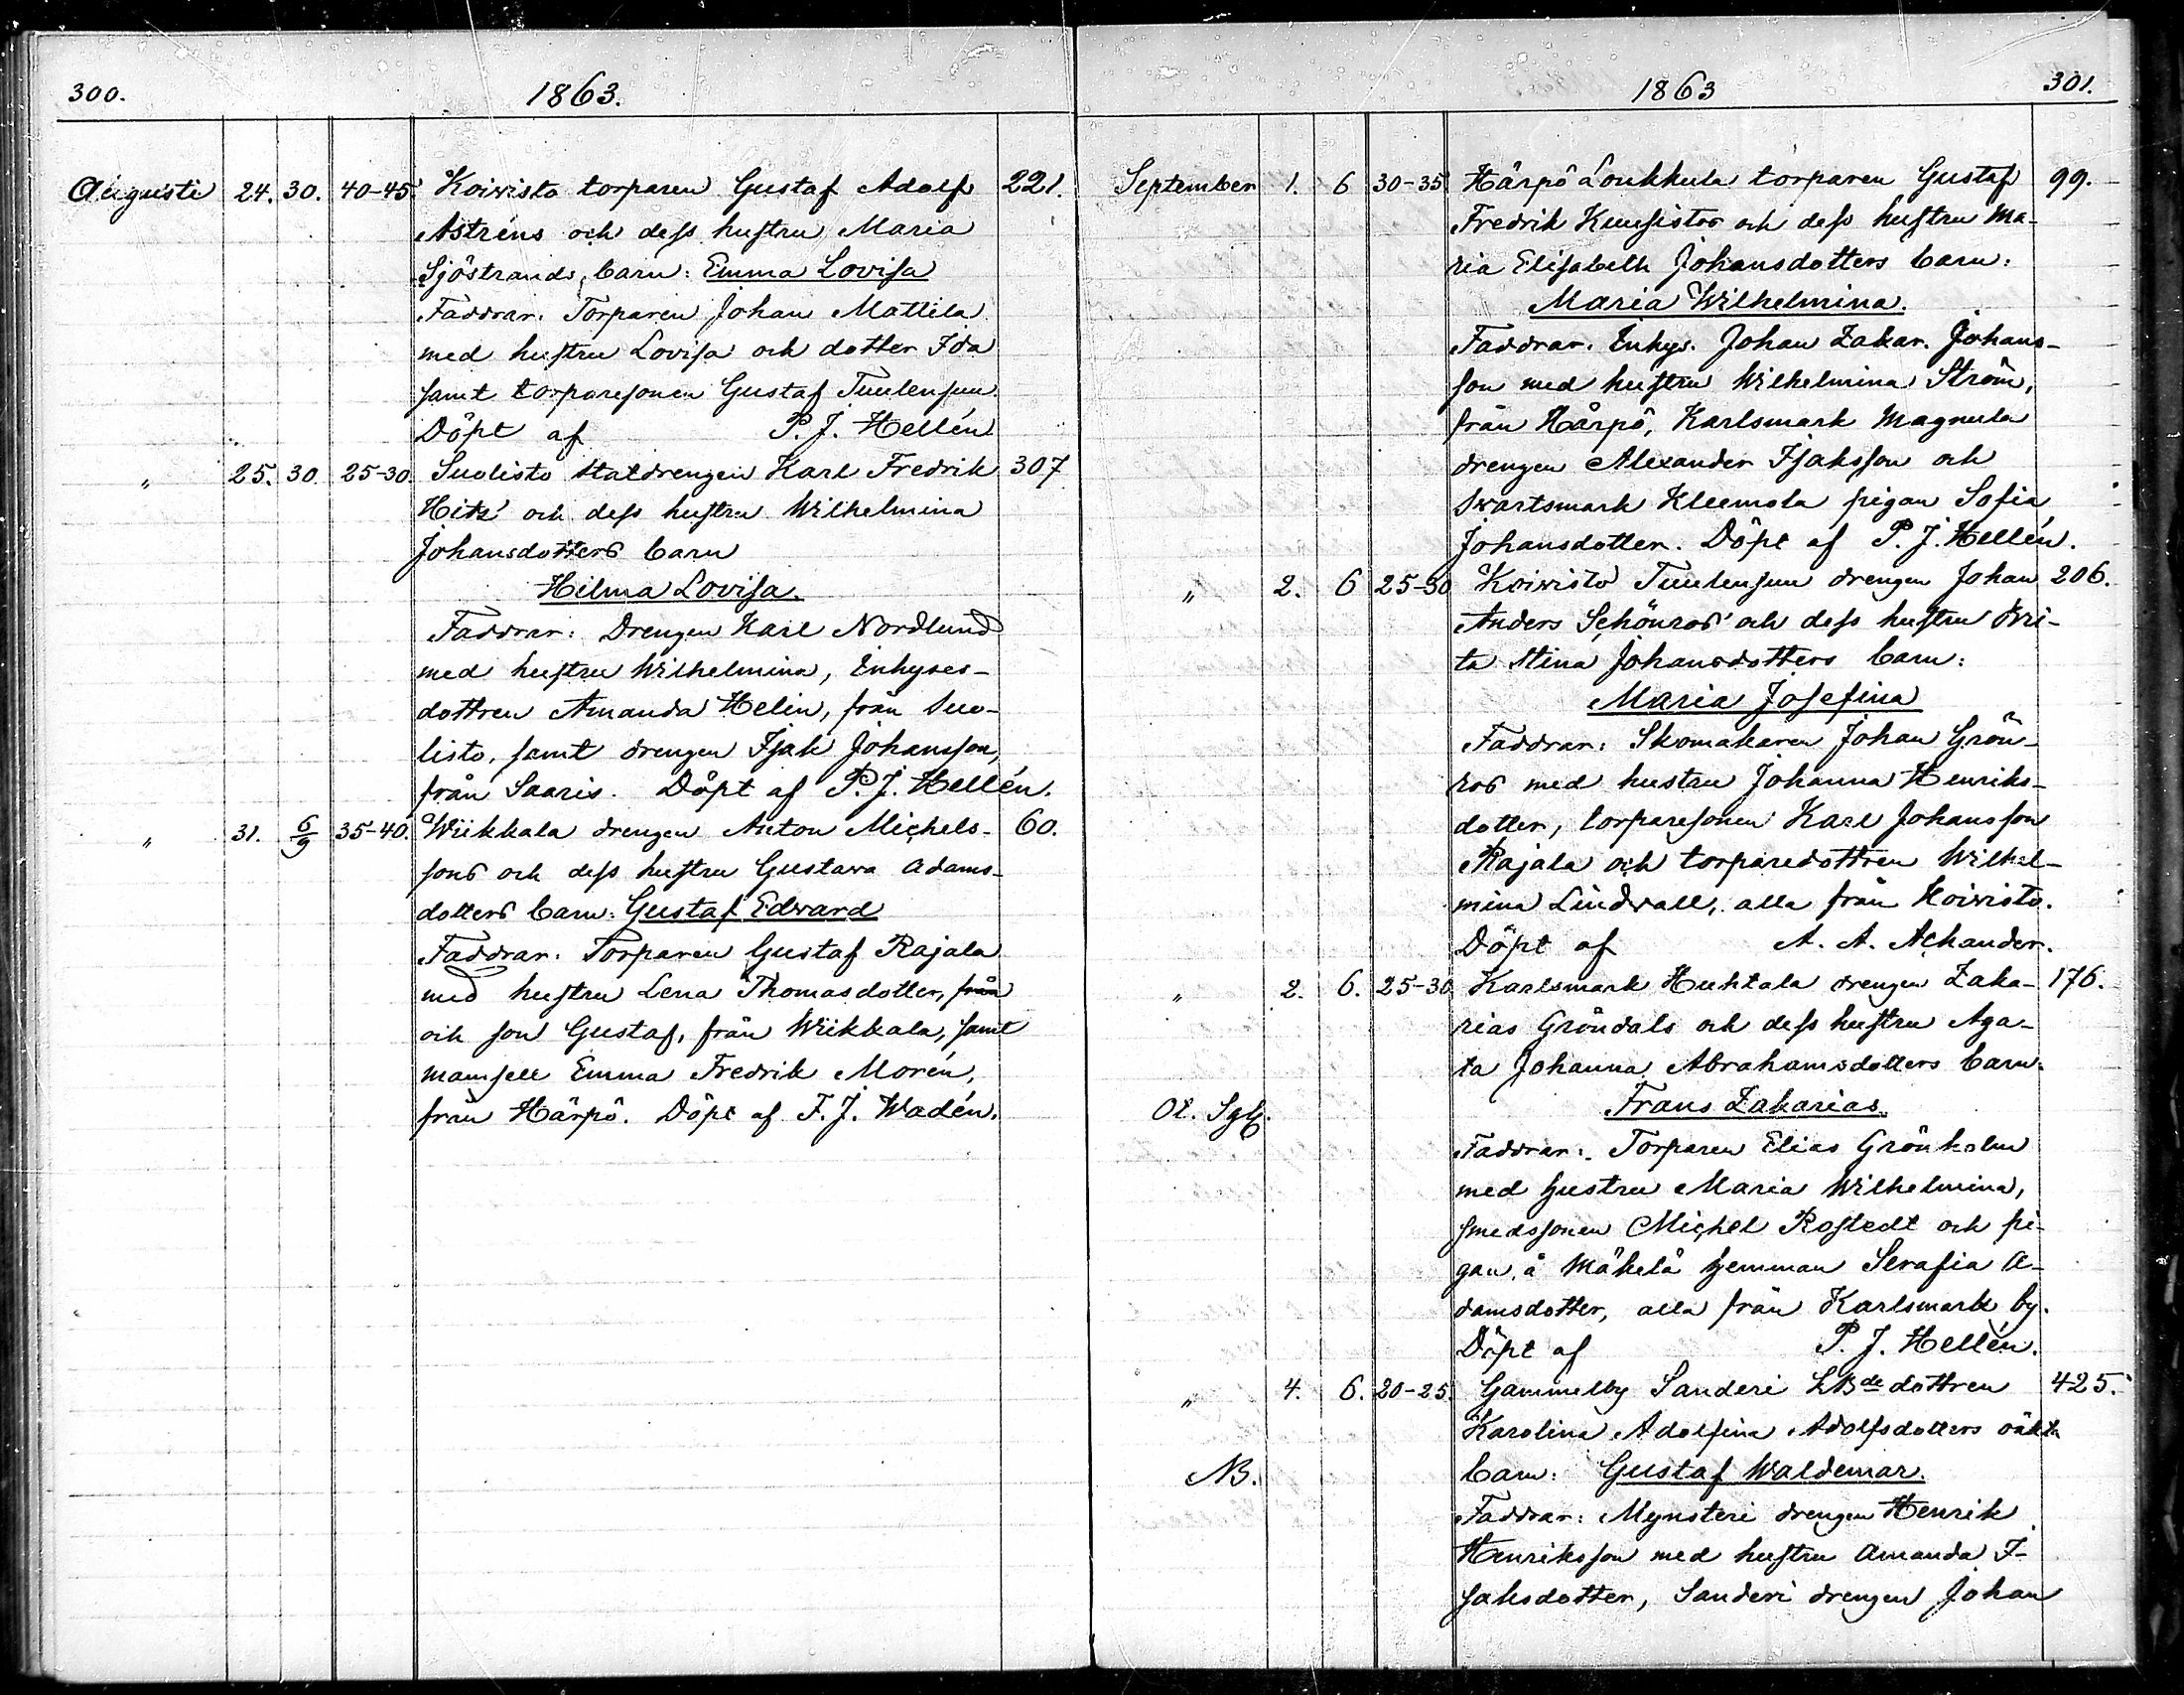 300.
1863.
Augusti 24. 30. 40-45. Koivisto torparen Gustaf Adolf 221.
Astréns och dess hustru Maria
Sjöstrands barn: Emma Lovisa
Faddrar: Torparen Johan Mattila
med hustru Lovisa och dotter Ida
samt torparesonen Gustaf Tuulensuu.
Döpt af P. J. Hellén
" 25. 30. 25-30. Suolisto statdrengen Karl Fredrik 307
Hitz' och dess hustru Wilhelmina
Johansdotters barn
Hilma Lovisa.
Faddrar: Drengen Karl Nordlund
med hustru Wilhelmina, Inhyses-
dottren Amanda Helin, från Suo-
listo, samt drengen Isak Johansson,
från Saaris. Döpt af P. J. Hellén.
" 31. 6/9 35-40. Wiikkala drengen Anton Michels- 60.
sons och dess hustru Gustava Adams-
dotters barn: Gustaf Edvard
Faddrar: Torparen Gustaf Rajala
med hustru Lena Thomasdotter, från
och son Gustaf, från Wiikkala, samt
mamsell Emma Fredrik Morén,
från Härpö. Döpt af F. J. Wadén.
1863
301.
September 1. 6 30-35 Härpö Loukkula torparen Gustaf 99.
Fredrik Kuusistos och dess hustru Ma-
ria Elisabeth Johansdotters barn:
Maria Wilhelmina.
Faddrar: Inhys. Johan Zakar. Johans-
son med hustru Wilhelmina Ström,
från Härpö, Karlsmark Magnula
drengen Alexander Isaksson och
Svartsmark Kleemola pigan Sofia
Johansdotter. Döpt af P. J. Hellén.
" 2. 6 25-30 Koivisto Tuulensuu drengen Johan 206.
Anders Schönros' och dess hustru Bri-
ta Stina Johansdotters barn:
Maria Josefina
Faddrar: Skomakaren Johan Grön-
ros med hustru Johanna Henriks-
dotter, torparesonen Karl Johansson
Rajala och torparedottren Wilhel-
mina Lindvall, alla från Koivisto.
Döpt af A. A. Achander.
" 2. 6. 25-30 Karlsmark Huhtala drengen Zaka- 176.
rias Gröndals och dess hustru Aga-
ta Johanna Abrahamsdotters barn:
Frans Zakarias.
Faddrar: Torparen Elias Grönholm
med hustru Maria Wilhelmina,
smedssonen Michel Rostedt och pi-
gan å Mäkelä hemman Serafia A-
damsdotter, alla från Karlsmark by.
Döpt af P. J. Hellén.
" 4. 6. 20-25. Gammelby Sanderi LBde dottren 425.
Karolina Adolfina Adolfsdotters oäkta
NB. barn: Gustaf Waldemar.
Faddrar: Mynsteri drengen Henrik
Henriksson med hustru Amanda I-
saksdotter, Sanderi drengen Johan